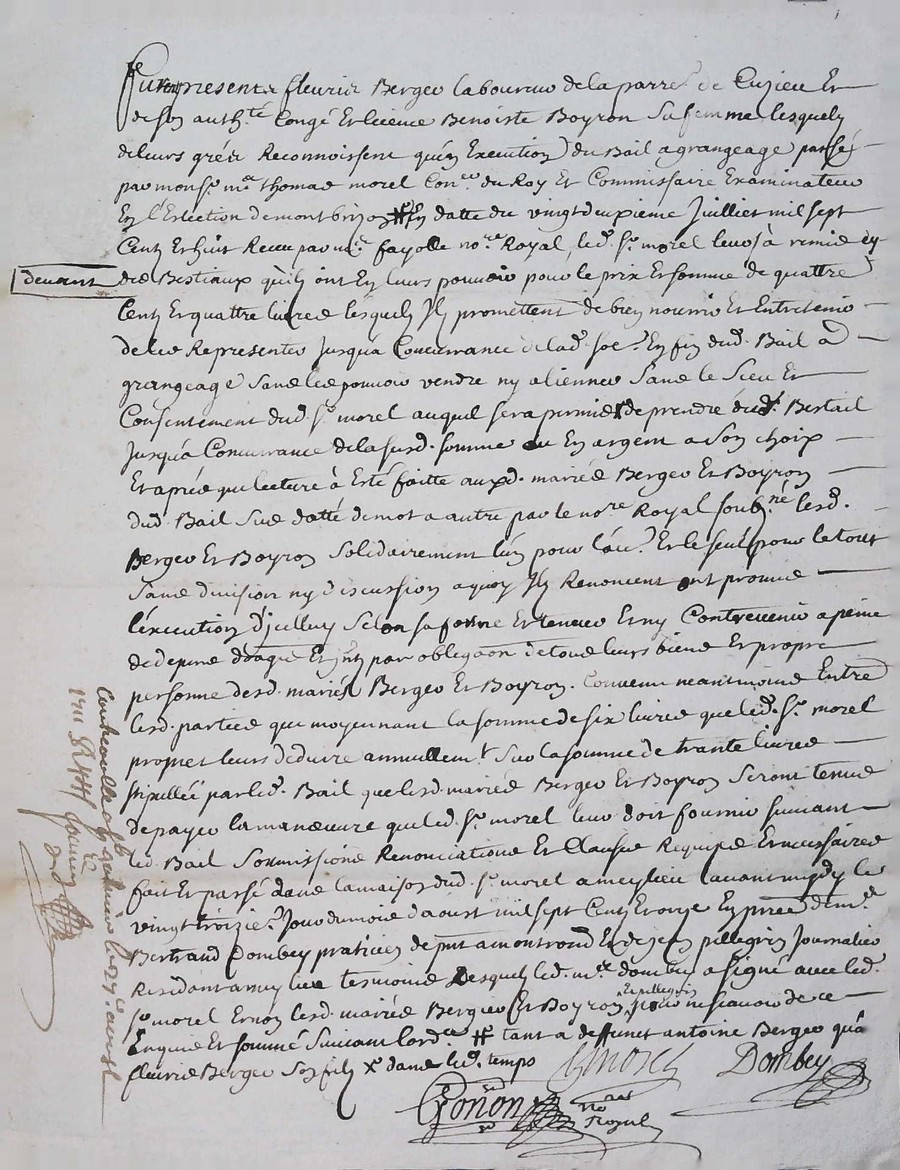 Furent presents fleurie Bergeo laboureur de la parr.e de Cuzieu Et
de son auth.té Congé Et licence Benoiste Boyron Sa femme lesquels
de leurs grés Reconnoissent quen Execution du Bail a grangeage passé
par mons.r m.e thomas morel Con.er du Roy Et Commissaire Examinateur
En l'Eslection de montbrison # En datte du vingt deuxieme Juilliet mil sept
Cents Et huit Receu par m.e fayolle no.re Royal led. S.r morel leurs à remis cy
devant des Bestiaux qu'ils ont En leurs pouvoir pour le prix Et somme de quattre
Cents Et quattre livres lesquels Ils promettent de bien nourrir Et Entretenir
de les Representer Jusqua Concurrance de lad. so.e En fin dud. Bail a
grangeage Sans les pouvoir vendre ny alienner Sans le Sceu Et
Consentement dud. S.r morel auquel sera permis de prendre dud. Bestail
Jusqua Concurrance de la susd. somme ou En argent a Son choix
Et aprés que lecture à Esté faitte auxd. mariés Bergeo Et Boyron
dud. Bail Sus datté de mot a autre par le no.re Royal soub.né lesd.
Bergeo Et Boyron Solidairement l'un pour l'au.e Et le seul pour le tout
Sans division ny discussion a quoy Ils Renoncent ont promis
l'execution d'jcelluy Selon sa forme Et teneur Et ny Contrevenir a peine
de depens domages Et jnt par obligaon de tous leurs biens Et propre
personne desd. mariés Bergeo Et Boyron. Convenu neantmoins Entre
lesd. parties que moyennant la somme de six livres que led. S.r morel
promet leurs deduire annullem.t Sur la somme de trante livres
stipullée par led. Bail que lesd. mariés Bergeo Et Boyron Seront tenus
de payer la manoeuvre que led. S.r morel leur doit fournir suivant
led. Bail Sommissions Renonciations Et Clauses Requises Et necessaires
fait Et passé dans la maison dud. S.r morel a meylieu avant midy le
vingt troizie.e Jour du mois d'aoust mil sept Cents Et onze En prce de m.e
Bertrand Dombey praticien de pnt a montrond Et de jean pellegrin Journalier
Residant a meylieu tesmoins Desquels led. m.e dombey a signé avec led.
S.r morel Et non lesd. mariés Bergeo Et Boyron Et pellegrin pour ne scavoir de ce
Enquis Et sommés Suivant lord.ce # tant a deffunct antoine Bergeo qua
fleurie Bergeo Son fils x dans led. temps
GMorel Dombey
Gonon no.re Royal
Contrerolle a St galmier le 29.e aoust
1711